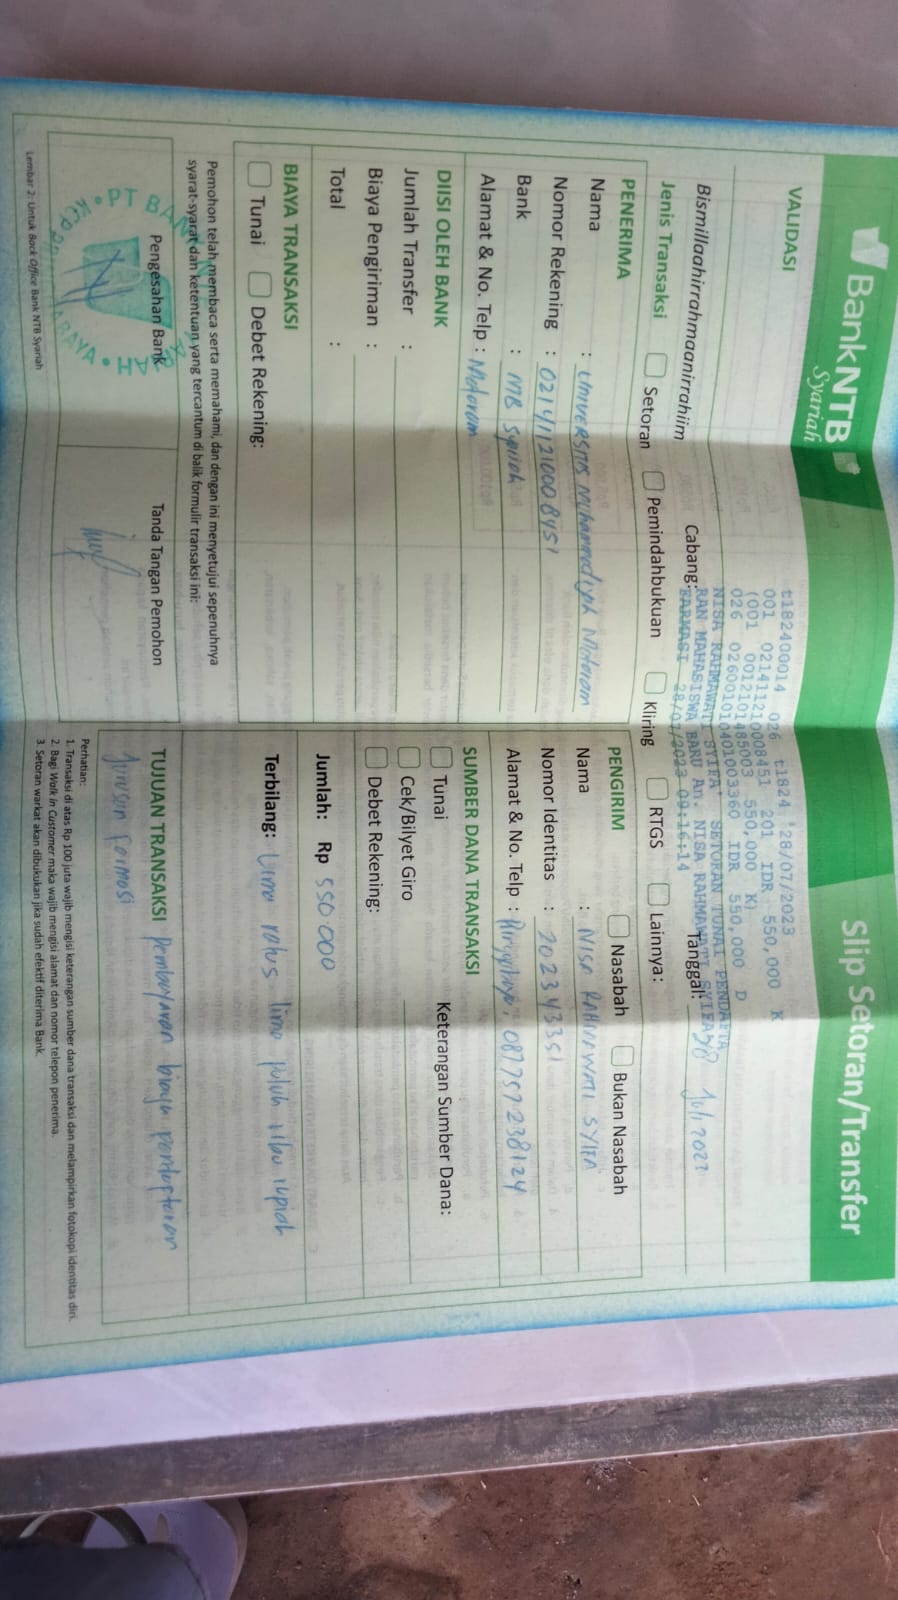 BankNTB
Syariah
Slip Setoran/Transfer
VALIDASI
t182400014 026 t1824 '28/07/2023
001 021411210008451 201 IDR 550,000 K
(001 0012101485003 550,000 K)
026 0260010104010003360 IDR 550,000 D
NISA RAHMAWATI SYIFA' SETORAN TUNAI PENDAFTA
RAN MAHASISWA BARU An. NISA RAHMAWATI SYIFA
FARMASI 28/07/2023 09:16:14
Bismillaahirrahmaanirrahiim
Cabang:
Tanggal: 28 Juli 2023
Jenis Transaksi
Setoran
Pemindahbukuan
Kliring
RTGS
Lainnya:
PENERIMA
Nama : UNIVERSITAS Muhammadiyah Mataram
Nomor Rekening : 021411210008451
Bank : NTB Syariah
Alamat & No. Telp : Mataram
PENGIRIM
Nasabah
Bukan Nasabah
Nama : NISA RAHMAWATI SYIFA
Nomor Identitas : 202343351
Alamat & No. Telp : 087757238124
DIISI OLEH BANK
Jumlah Transfer :
Biaya Pengiriman :
Total :
SUMBER DANA TRANSAKSI
Tunai
Keterangan Sumber Dana:
Cek/Bilyet Giro
Debet Rekening:
BIAYA TRANSAKSI
Tunai
Debet Rekening:
Jumlah: Rp 550 000
Terbilang: Lima ratus lima puluh ribu rupiah
Pemohon telah membaca serta memahami, dan dengan ini menyetujui sepenuhnya
syarat-syarat dan ketentuan yang tercantum di balik formulir transaksi ini:
Pengesahan Bank
Tanda Tangan Pemohon
TUJUAN TRANSAKSI Pembayaran biaya pendaftaran
Jurusan Farmasi
Perhatian:
1. Transaksi di atas Rp 100 juta wajib mengisi keterangan sumber dana transaksi dan melampirkan fotokopi identitas diri.
2. Bagi Walk in Customer maka wajib mengisi alamat dan nomor telepon penerima.
3. Setoran warkat akan dibukukan jika sudah efektif diterima Bank.
Lembar 2: Untuk Back Office Bank NTB Syariah